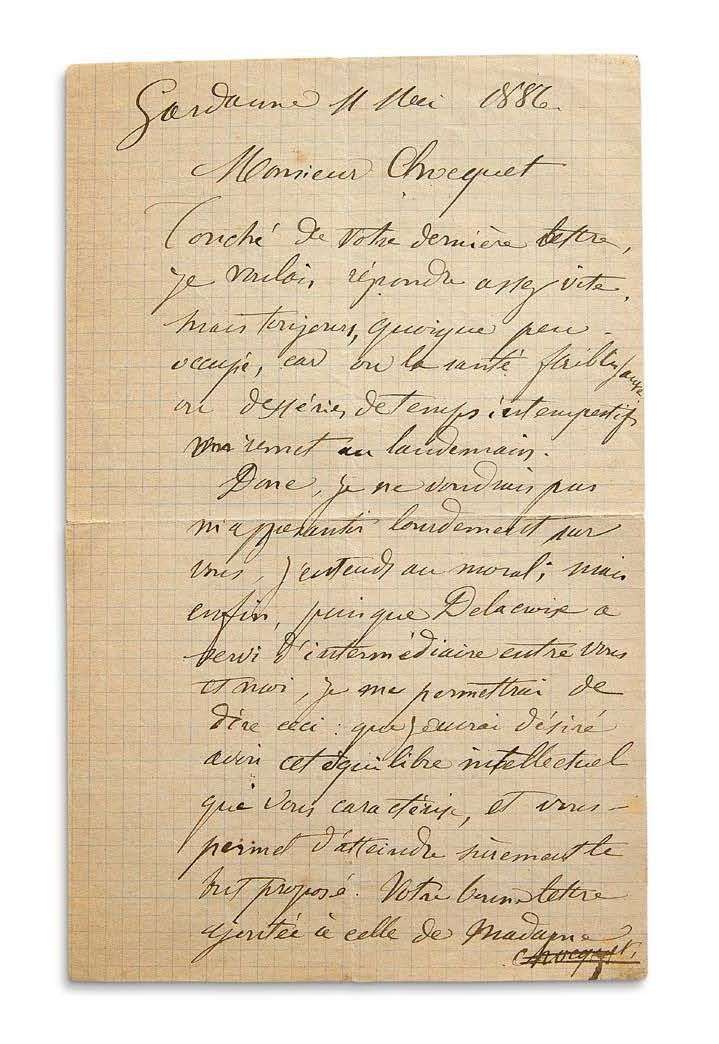 Gardanne 11 Mai 1886.
Monsieur Chocquet
Touché de votre dernière lettre,
je voulais répondre assez vite,
mais toujours, quoique peu
occupé, car ou la santé faiblis,
ou des séries de temps intempestifs
remet au landemain.
Donc, je ne voudrais pas
m'appesantir lourdement sur
vous, j'entends au moral; mais
enfin, puisque Delacroix a
servi d'intermédiaire entre vous
et moi, je me permettrai de
dire ceci: que j'eurai désiré
avoir cet équilibre intellectuel
que vous caractérise, et vous
permet d'atteindre sûrement le
but proposé. Votre bonne lettre
ajoutée à celle de Madame
Chocquet,